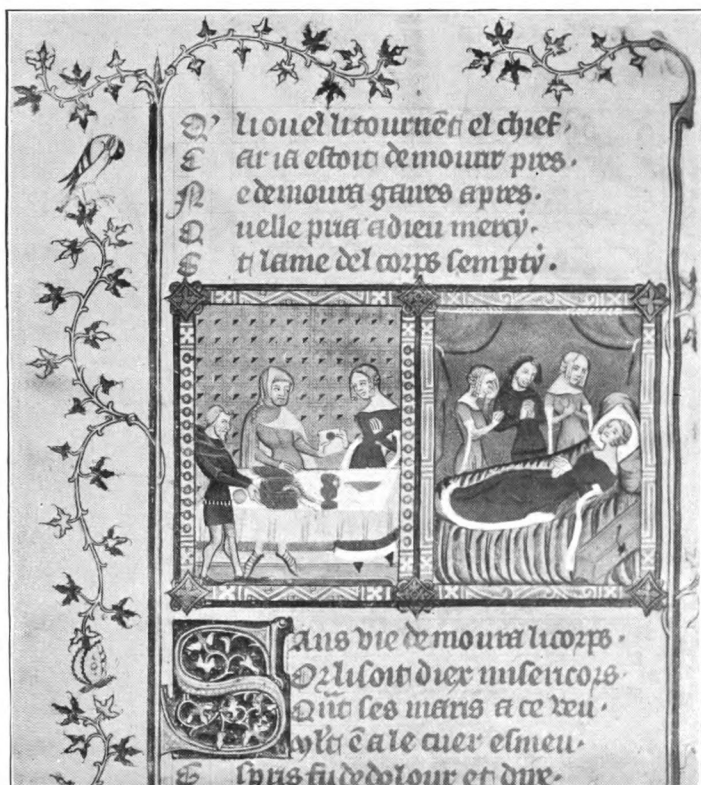 Q' li ouel li tournẽt el chief.
C ar ia estoit de mourir pres.
N e demoura gaires apres.
Q uelle pria a dieu mercy.
E t lame del corps sempty.
Sans vie demoura li corps.
Or li soit diex misericors
Qũt ses maris a ce veu.
ylt ẽ a le cuer esmeu.
E spris fu de dolour et dire.